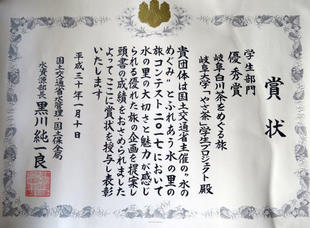 賞状
学生部門
優秀賞
岐阜白川茶をめぐる旅
岐阜大学「やさ茶」学生プロジェクト 殿
貴団体は国土交通省主催の“水の
めぐみ”とふれあう 水の里の
旅コンテスト二〇一七において
水の里の大切さと魅力が感じ
られる優れた旅の企画を提案し
頭書の成績をおさめられました
よってここに賞状を授与し表彰
いたします
平成三十年一月十日
国土交通省水管理・国土保全局
水資源部長 黒川純一良